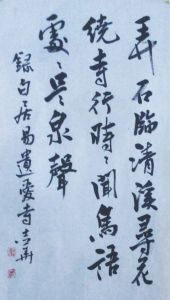 弄石臨清溪尋花
繞寺行時〻聞鳥語
處〻是泉聲
錄白居易遺愛寺